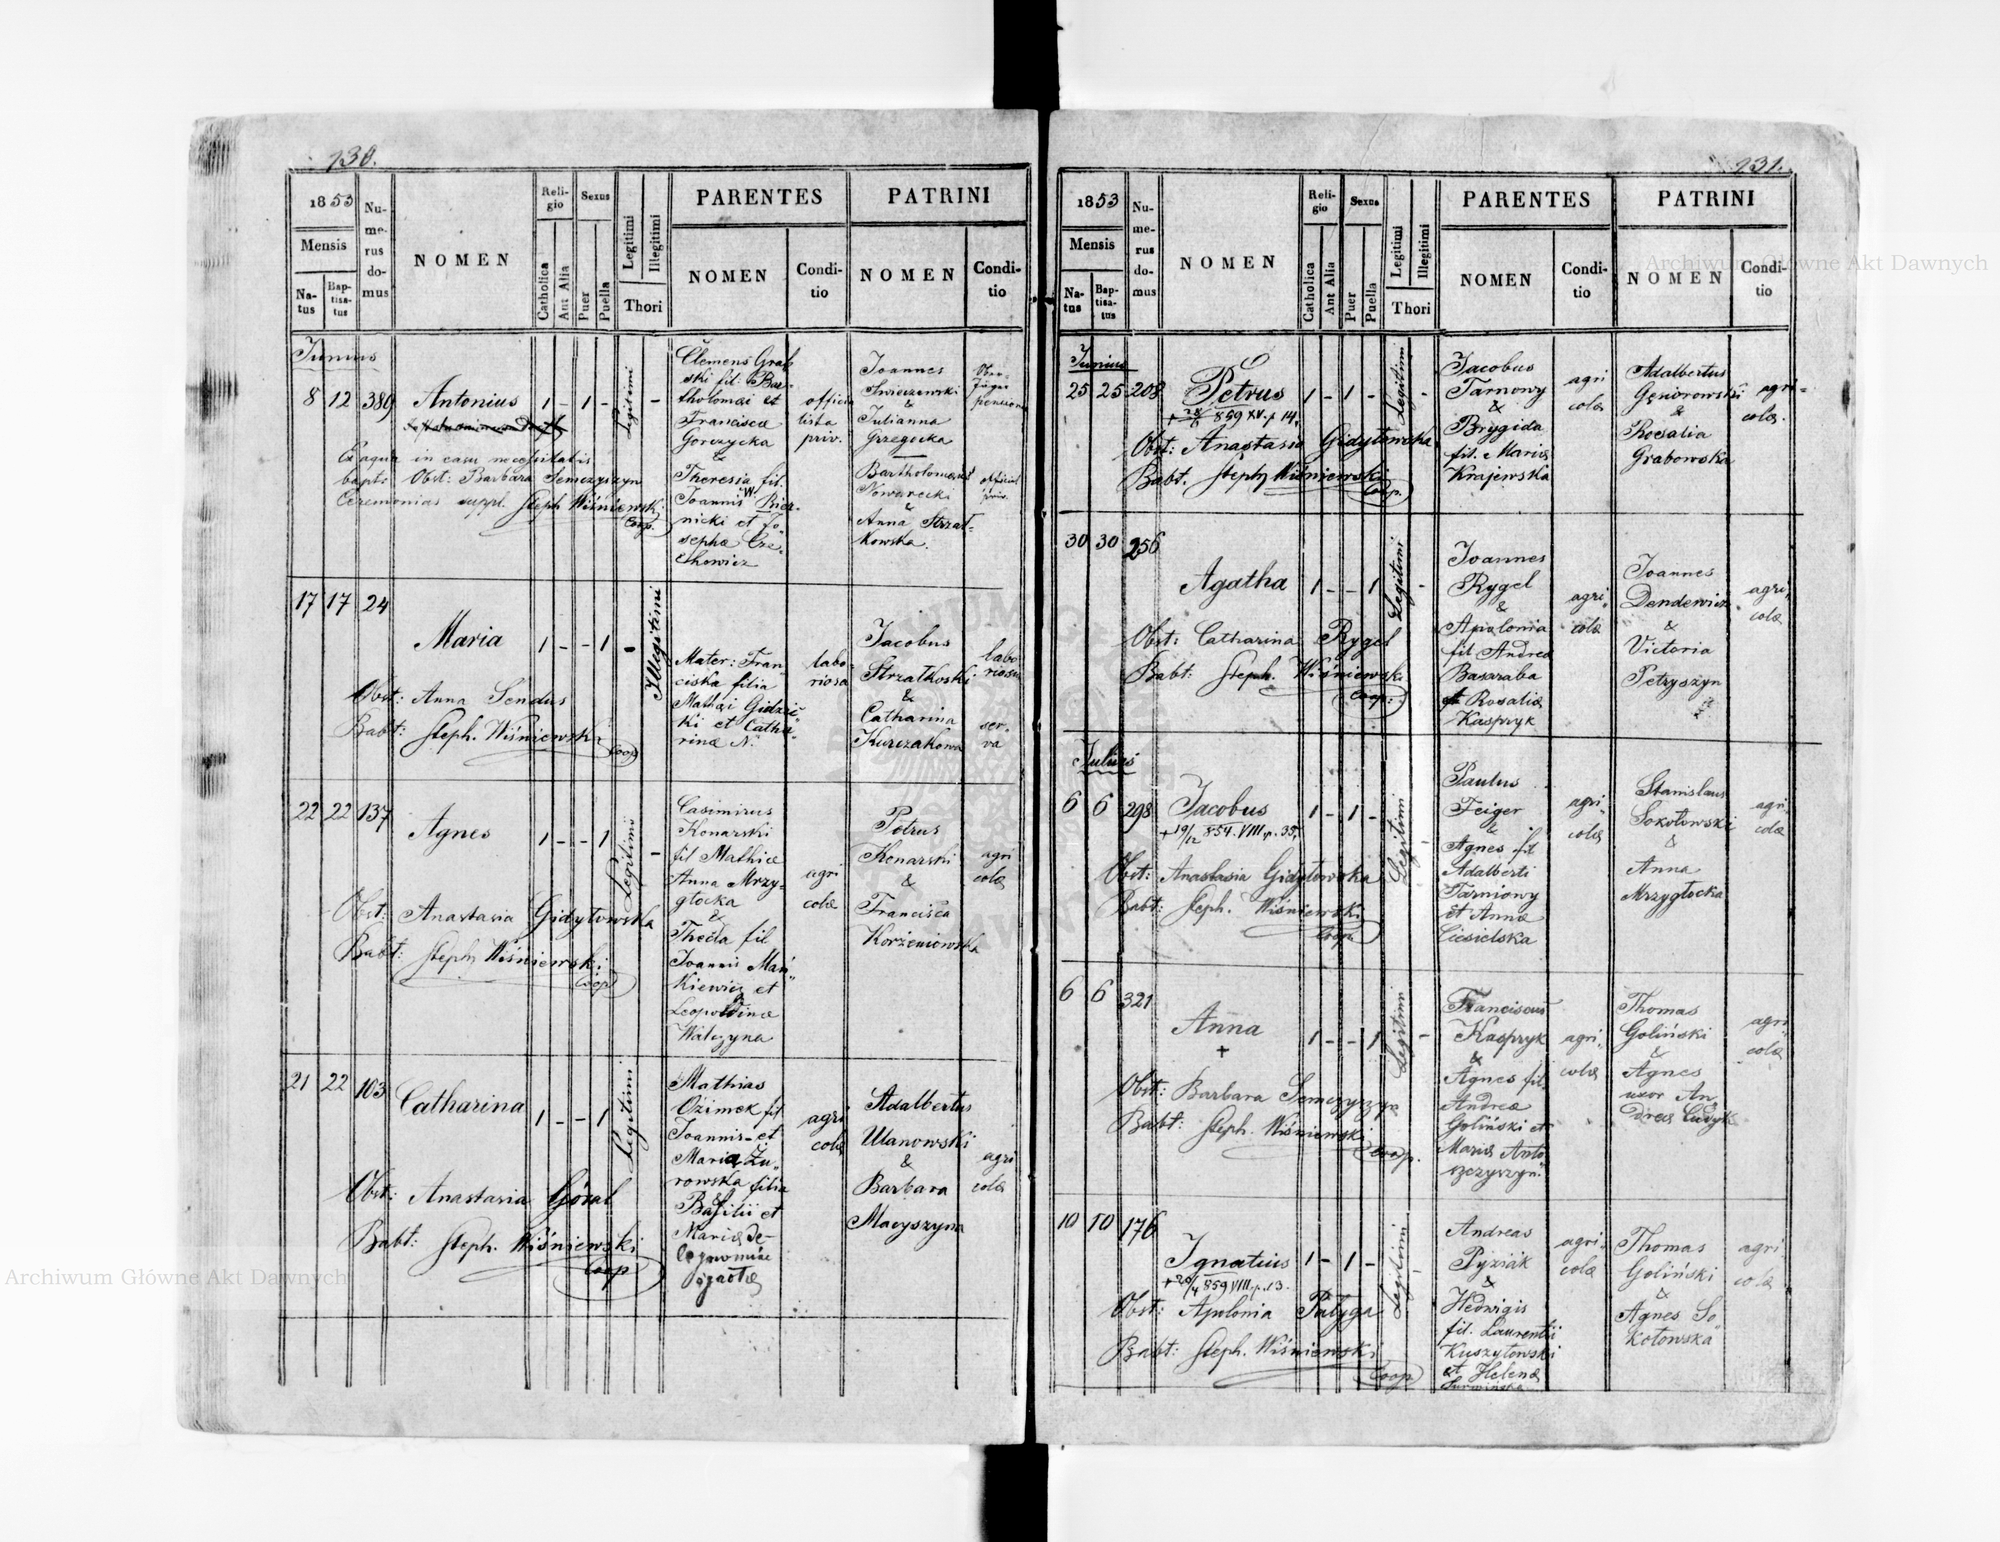 130.
1853
Mensis
Natus
Baptisatus
Numerus domus
NOMEN
Religio
Catholica
Aut Alia
Sexus
Puer
Puella
Legitimi
Illegitimi
Thori
PARENTES
NOMEN
Conditio
PATRINI
NOMEN
Conditio
Junius
8 12 389 Antonius 1 - 1 - Legitimi -
Ex aqua in casu necessitatis
bapt. Obst: Barbara Semczyszyn
Ceremonias suppl. Steph Wiśniewski
Coop.
Clemens Grab
ski fil. Bar-
tholomæi et
Francisca
Gorczycka
&
Theresia fil.
Joannis W. Bier-
nicki et Jo-
sephæ Cze-
chowicz
officia
lista
priv.
Joannes
Swieczewski
&
Julianna
Grzegocka
Bartholomæus
Nowarecki
&
Anna Strzał-
kowska.
17 17 24
Maria 1 - - 1 - Illegitimi
Obst: Anna Sendus
Babt: Steph. Wiśniewski
Coop
Mater: Fran
ciska filia
Mathæi Gidzic
ki et Catha-
rinæ N.
labo-
riosa
Jacobus
Strzałkoski
&
Catharina
Kurczakowa
labo
riosus
ser-
va
22 22 137
Agnes 1 - - 1 Legitimi -
Obst: Anastasia Gidytowska
Babt: Steph Wiśniewski
Coop
Casimirus
Konarski
fil Mathiæ
Anna Mrzy-
głocka
&
Thecla fil
Joannis Mań-
kiewicz et
Leopoldinæ
Walczyna
agri
colæ
Petrus
Konarski
&
Francisca
Korzeniowska
agri
colæ
21 22 103
Catharina 1 - - 1 Legitimi
Obst: Anastasia Góral
Babt: Steph. Wiśniewski
Coop
Mathias
Ozimek fil
Joannis et
Maria Żu-
rowska filia
Basilii et
Maria de
agri
colæ
Adalbertus
Ulanowski
&
Barbara
Macyszyna
agri
colæ
131.
1853
Mensis
Natus
Baptisatus
Numerus domus
NOMEN
Religio
Catholica
Aut Alia
Sexus
Puer
Puella
Legitimi
Illegitimi
Thori
PARENTES
NOMEN
Conditio
PATRINI
NOMEN
Conditio
Junius
25 25 208 Petrus 1 - 1 - Legitimi -
+ 28/6 859 XV. p 14.
Obst: Anastasia Gidytowska
Babt. Steph Wiśniewski
Coop.
Jacobus
Tarnowy
&
Brygida
fil. Mariæ
Krajewska
agri
colæ
Adalbertus
Gęsiorowski
&
Rosalia
Grabowska
agri-
colæ.
30 30 256
Agatha 1 - - 1 Legitimi -
Obst: Catharina Rygel
Babt: Steph. Wiśniewski
Coop.
Joannes
Rygel
&
Apolonia
fil Andreæ
Basaraba
et Rosaliæ
Kaspryk
agri-
colæ
Joannes
Dendewicz
&
Victoria
Petryszyn
agri,
colæ
Julius
6 6 298 Jacobus 1 - 1 - Legitimi -
+ 19/12 854. VIII. p. 35.
Obst: Anastasia Gidytowska
Babt: Steph. Wiśniewski
Coop
Paulus
Feiger
&
Agnes fil
Adalberti
Tarniowy
et Annæ
Ciesielska
agri-
colæ
Stanislaus
Sokołowski
&
Anna
Mrzygłocka
agri
colæ
6 6 321
Anna 1 - - 1 Legitimi -
+
Obst: Barbara Semczyszyn
Babt: Steph. Wiśniewski
Coop.
Franciscus
Kaspryk
&
Agnes fil.
Andreæ
Goliński et
Mariæ Anto
szczyszyn.
agri.
colæ
Thomas
Goliński
&
Agnes
uxor An-
dreæ Cudyk
agri
colæ
10 10 176
Ignatius 1 - 1 - Legitimi
+ 20/4 859 VIII. p. 13.
Obst: Apolonia Pałyga
Babt: Steph. Wiśniewski
Coop
Andreas
Pyziak
&
Hedwigis
fil. Laurentii
Kuszytowski
et Helenæ
Surmińska
agri-
colæ
Thomas
Goliński
&
Agnes So
kołowska
agri
colæ
Archiwum Główne Akt Dawnych
Archiwum Główne Akt Dawnych